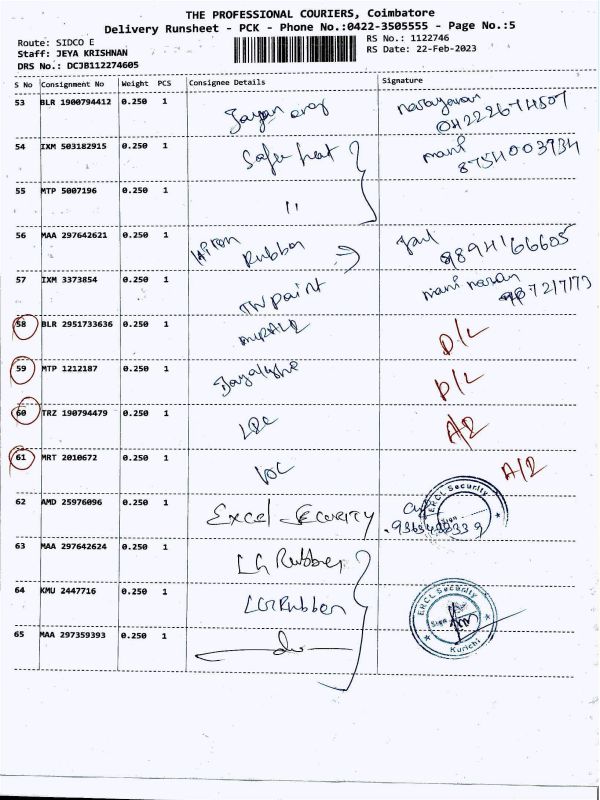 THE PROFESSIONAL COURIERS, Coimbatore
Delivery Runsheet - PCK - Phone No.:0422-3505555 - Page No.:5
Route: SIDCO E
RS No.: 1122746
Staff: JEYA KRISHNAN
RS Date: 22-Feb-2023
DRS No.: DCJB112274605
S No Consignment No Weight PCS Consignee Details Signature
53 BLR 1900794412 0.250 1
54 IXM 503182915 0.250 1 Safer heat mani
55 MTP 5007196 0.250 1 11
56 MAA 297642621 0.250 1 Rubber
57 IXM 3373854 0.250 1
58 BLR 2951733636 0.250 1 D/L
59 MTP 1212187 0.250 1 D/L
60 TRZ 190794479 0.250 1 A/2
61 MRT 2010672 0.250 1 A/2
62 AMD 25976096 0.250 1 EXCEL SECURITY
ERCL Security
Sign
63 MAA 297642624 0.250 1 LG Rubber
64 KMU 2447716 0.250 1 LGRubber
ERCL Security
Sign
Kurichi
65 MAA 297359393 0.250 1 do